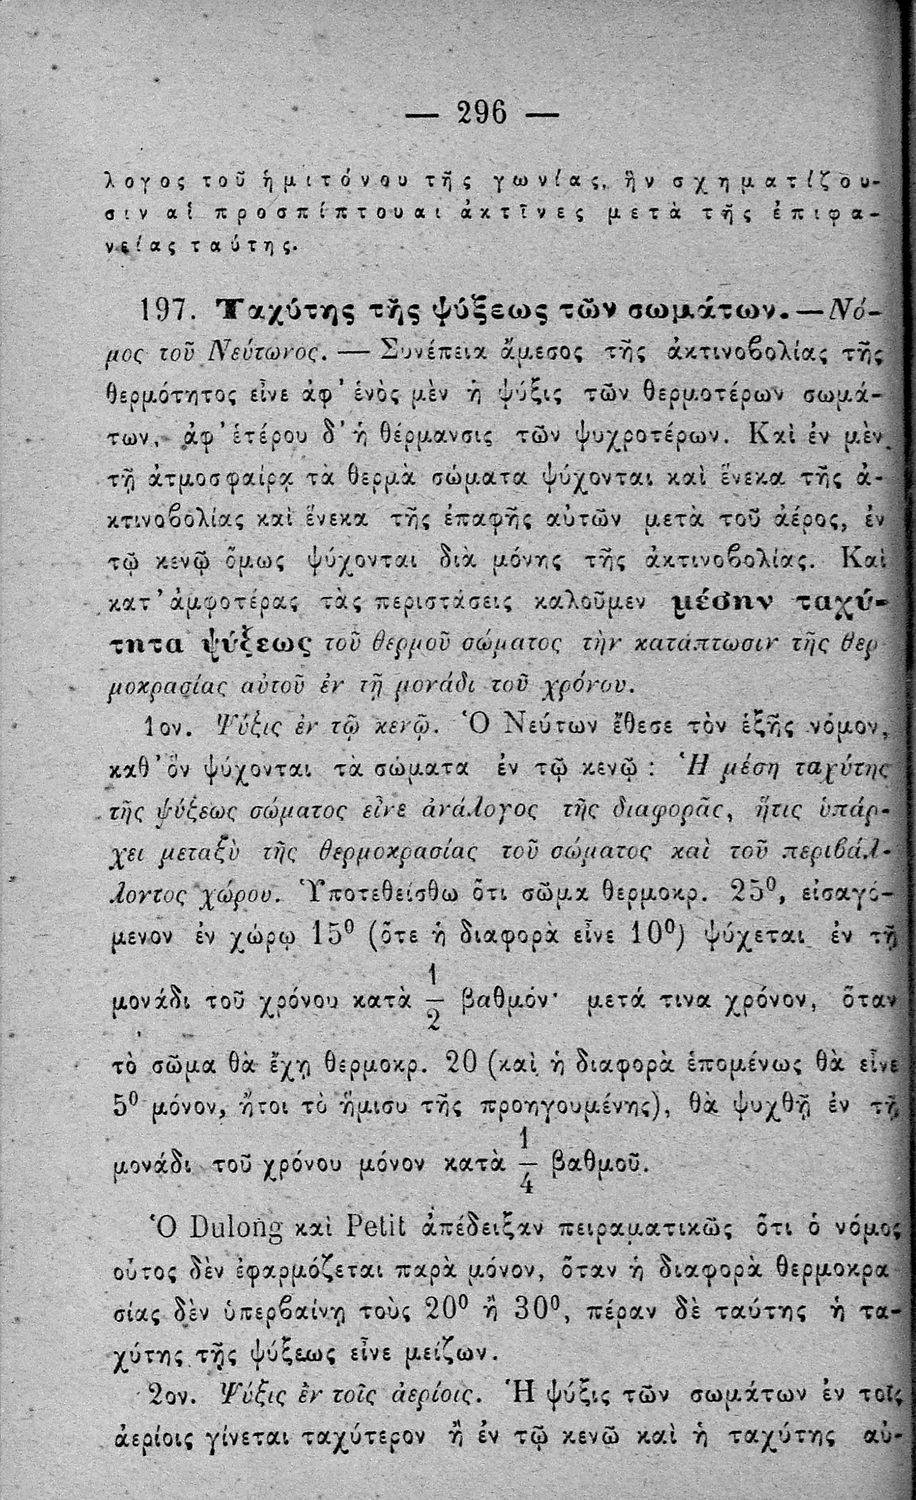 — 296 —
λογος τοῦ ἡμιτόνου τῆς γωνίας, ἣν σχηματίζου-
σιν αἱ προσπίπτουσαι ἀκτῖνες μετὰ τῆς ἐπιφα-
νείας ταύτης.
197. Ταχύτης τῆς ψύξεως τῶν σωμάτων. — Νό-
μος τοῦ Νεύτωνος. — Συνέπεια ἄμεσος τῆς ἀκτινοβολίας τῆς
θερμότητος εἶνε ἀφ' ἑνὸς μὲν ἡ ψύξις τῶν θερμοτέρων σωμά-
των, ἀφ' ἑτέρου δ' ἡ θέρμανσις τῶν ψυχροτέρων. Καὶ ἐν μὲν
τῇ ἀτμοσφαίρᾳ τὰ θερμὰ σώματα ψύχονται καὶ ἕνεκα τῆς ἀ-
κτινοβολίας καὶ ἕνεκα τῆς ἐπαφῆς αὐτῶν μετὰ τοῦ ἀέρος, ἐν
τῷ κενῷ ὅμως ψύχονται διὰ μόνης τῆς ἀκτινοβολίας. Καὶ
κατ' ἀμφοτέρας τὰς περιστάσεις καλοῦμεν μέσην ταχύ-
τητα ψύξεως τοῦ θερμοῦ σώματος τὴν κατάπτωσιν τῆς θερ
μοκρασίας αὐτοῦ ἐν τῇ μονάδι τοῦ χρόνου.
1ον. Ψύξις ἐν τῷ κενῷ. Ὁ Νεύτων ἔθεσε τὸν ἑξῆς νόμον,
καθ' ὃν ψύχονται τὰ σώματα ἐν τῷ κενῷ : Ἡ μέση ταχύτης
τῆς ψύξεως σώματος εἶνε ἀνάλογος τῆς διαφορᾶς, ἥτις ὑπάρ-
χει μεταξὺ τῆς θερμοκρασίας τοῦ σώματος καὶ τοῦ περιβάλ-
λοντος χώρου. Ὑποτεθείσθω ὅτι σῶμα θερμοκρ. 25⁰, εἰσαγό-
μενον ἐν χώρῳ 15⁰ (ὅτε ἡ διαφορὰ εἶνε 10⁰) ψύχεται ἐν τῇ
μονάδι τοῦ χρόνου κατὰ 1/2 βαθμόν· μετά τινα χρόνον, ὅταν
τὸ σῶμα θὰ ἔχῃ θερμοκρ. 20 (καὶ ἡ διαφορὰ ἑπομένως θὰ εἶνε
5⁰ μόνον, ἤτοι τὸ ἥμισυ τῆς προηγουμένης), θὰ ψυχθῇ ἐν τῇ
μονάδι τοῦ χρόνου μόνον κατὰ 1/4 βαθμοῦ.
Ὁ Dulong καὶ Petit ἀπέδειξαν πειραματικῶς ὅτι ὁ νόμος
οὗτος δὲν ἐφαρμόζεται παρὰ μόνον, ὅταν ἡ διαφορὰ θερμοκρα
σίας δὲν ὑπερβαίνῃ τοὺς 20⁰ ἢ 30⁰, πέραν δὲ ταύτης ἡ τα-
χύτης τῆς ψύξεως εἶνε μείζων.
2ον. Ψύξις ἐν τοῖς ἀερίοις. Ἡ ψύξις τῶν σωμάτων ἐν τοῖς
ἀερίοις γίνεται ταχύτερον ἢ ἐν τῷ κενῷ καὶ ἡ ταχύτης αὐ-